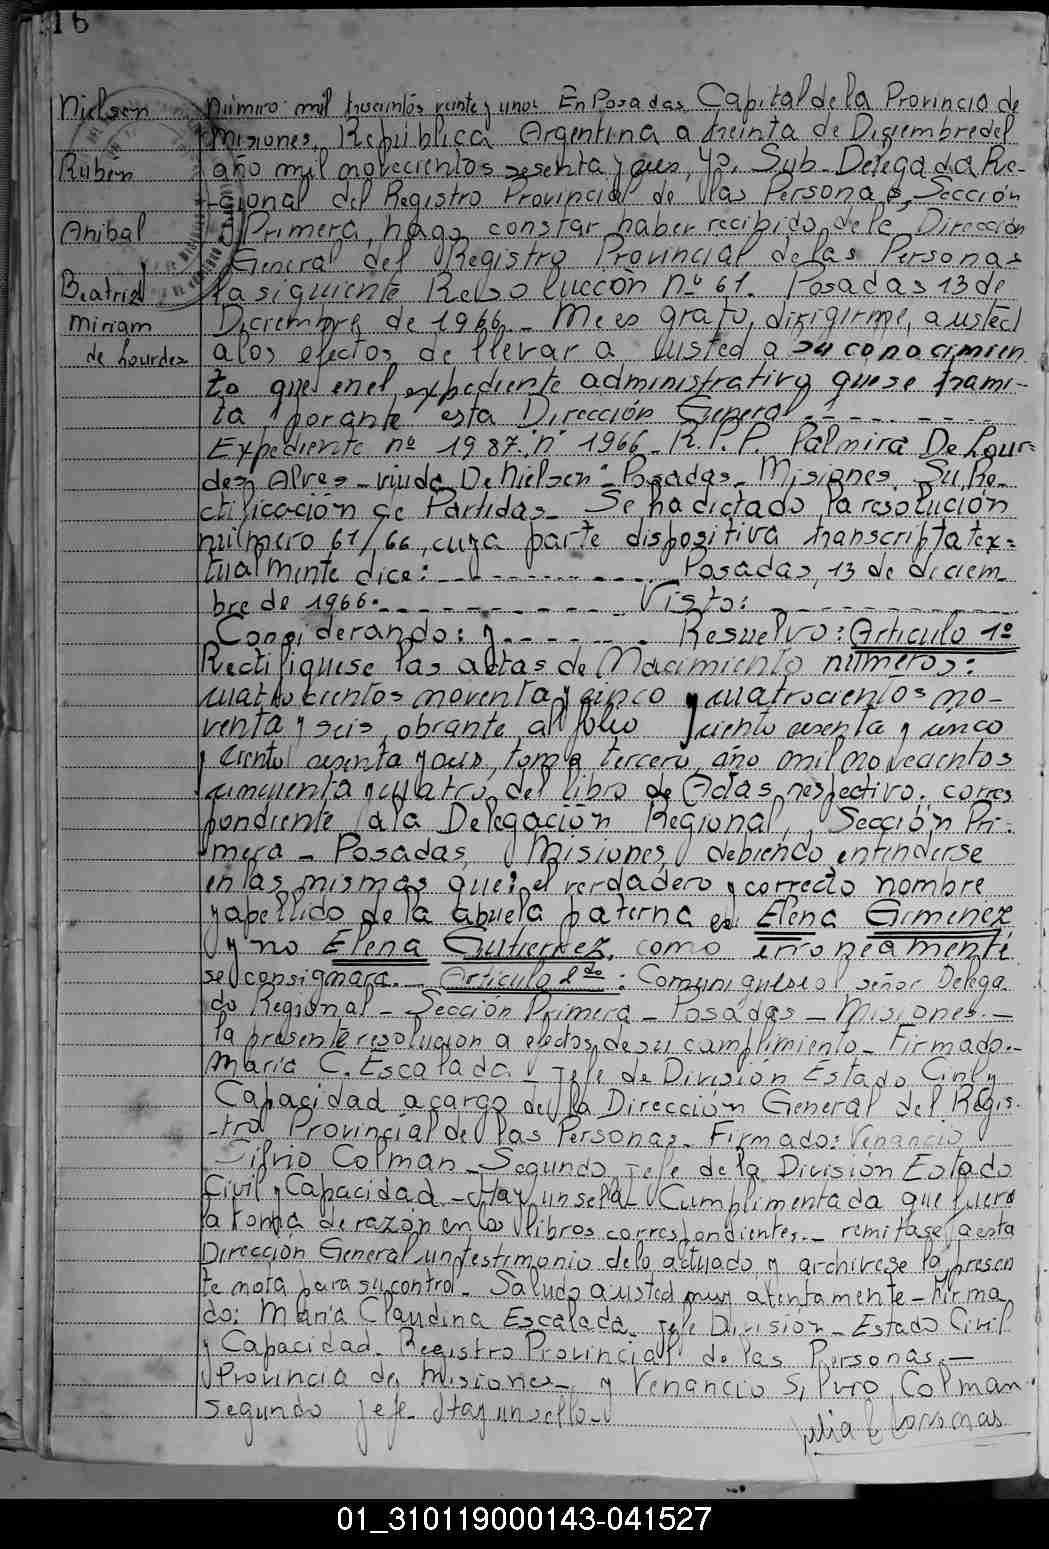 16
Nielsen
Ruben
Anibal
Beatriz
Miriam
de Lourdes
Número: mil trescientos veinte y uno: En Posadas Capital de la Provincia de
Misiones, República Argentina a treinta de Diziembre del
año mil novecientos sesenta y seis, yo, Sub-Delegada Re-
gional del Registro Provincial de las Personas, Sección
Primera, hago constar haber recibido de la Dirección
General del Registro Provincial de las Personas
la siguiente Resolucción nº 61. Posadas 13 de
Diciembre de 1966.- Me es grato, dirigirme, a usted
a los efectos de llevar a usted a su conocimien
to que en el expediente administrativo que se trami-
ta por ante esta Dirección General.-
Expediente nº 1987."n" 1966_ R.P.P. Palmira De Lour-
des Alves - viuda De Nielsen: Posadas_ Misiones. Su Re-
ctificación de Partidas_ Se ha dictado la resolución
número 61/66, cuya parte dispositiva transcripta tex=
tualmente dice: Posadas, 13 de diciem_
bre de 1966. Visto:
Considerando: y Resuelvo: Artículo 1º
Rectifíquese las actas de Nacimiento números:
cuatrocientos noventa y cinco y cuatrocientos no-
venta y seis, obrante al folio ciento sesenta y cinco
y ciento sesenta y seis, tomo tercero, año mil novecientos
cincuenta y cuatro del libro de Actas respectivo; corres
pondiente a la Delegación Regional, Sección Pri:
mera - Posadas, Misiones, debiendo entenderse
en las mismas que: el verdadero y correcto nombre
y apellido de la abuela paterna es: Elena Gimenez
y no Elena Gutierrez, como erroneamente
se consignara.- Artículo 2do: Comuniquese al señor Delega
do Regional - Sección Primera - Posadas - Misiones.-
la presente resolución a efectos de su cumplimiento - Firmado.-
María C. Escalada - Jefe de División Estado Civil y
Capacidad a cargo de la Dirección General del Regis.
-tro Provincial de las Personas - Firmado: Venancio
Silvio Colman - Segundo Jefe de la División Estado
Civil y Capacidad - Hay un sello - Cumplimentada que fuera
la toma de razón en los libros correspondientes.- remitase a esta
Dirección General un testimonio de lo actuado y archivese la presen
te nota para su control - Saludo a usted muy atentamente - Firma
do: María Claudina Escalada - Jefe División - Estado Civil
y Capacidad. Registro Provincial de las Personas -
Provincia de Misiones - y Venancio Silvio Colman
segundo jefe - Hay un sello.-
01_310119000143-041527